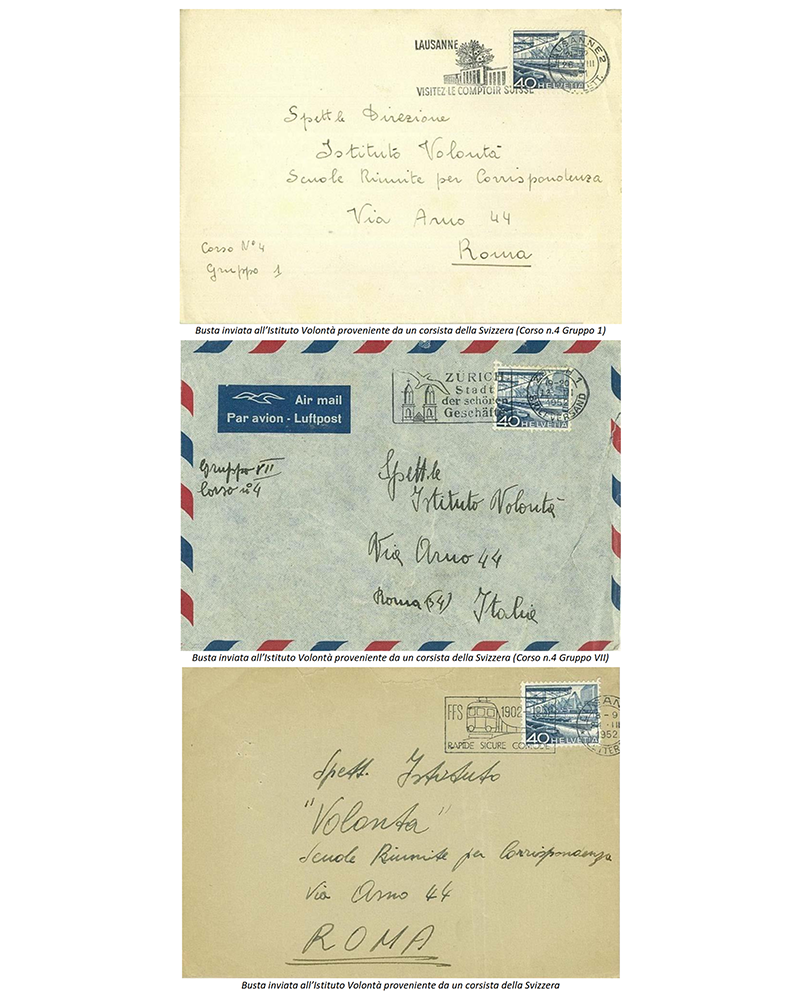 LAUSANNE
VISITEZ LE COMPTOIR SUISSE
LAUSANNE 2
40 HELVETIA
Spett.le Direzione
Istituto Volontà
Scuole Riunite per Corrispondenza
Via Arno 44
Roma
Corso N°4
Gruppo 1
Busta inviata all'Istituto Volontà proveniente da un corsista della Svizzera (Corso n.4 Gruppo 1)
Air mail
Par avion - Luftpost
ZURICH
Stadt
der schönen
Geschäfte
40 HELVETIA
Gruppo VII
Corso n°4
Spett.le
Istituto Volontà
Via Arno 44
Roma (34) Italia
Busta inviata all'Istituto Volontà proveniente da un corsista della Svizzera (Corso n.4 Gruppo VII)
FFS 1902-
RAPIDE SICURE COMODE
40 HELVETIA
1952
Spett. Istituto
"Volonta"
Scuole Riunite per Corrispondenza
Via Arno 44
ROMA
Busta inviata all'Istituto Volontà proveniente da un corsista della Svizzera